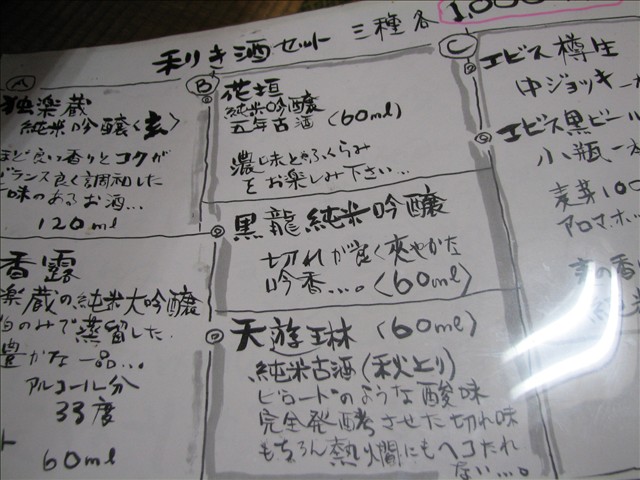 利き酒セット 三種 各 1,000
A
独楽蔵
純米吟醸<玄>
ほど良い香りとコクが
バランス良く調和した
味のあるお酒...
120ml
香露
楽蔵の純米大吟醸
のみで蒸留した
豊かな一品...
アルコール分
33度
60ml
B
花垣
純米吟醸
五年古酒 (60ml)
濃い味とふくらみ
をお楽しみ下さい...
黒龍 純米吟醸
切れが良く爽やかな
吟香...。(60ml)
天遊琳 (60ml)
純米古酒(秋とり)
ビロードのような酸味
完全発酵させた切れ味
もちろん熱燗にもヘコたれ
ない...。
C
エビス樽生
中ジョッキ一
エビス黒ビール
小瓶一
麦芽100
アロマホ